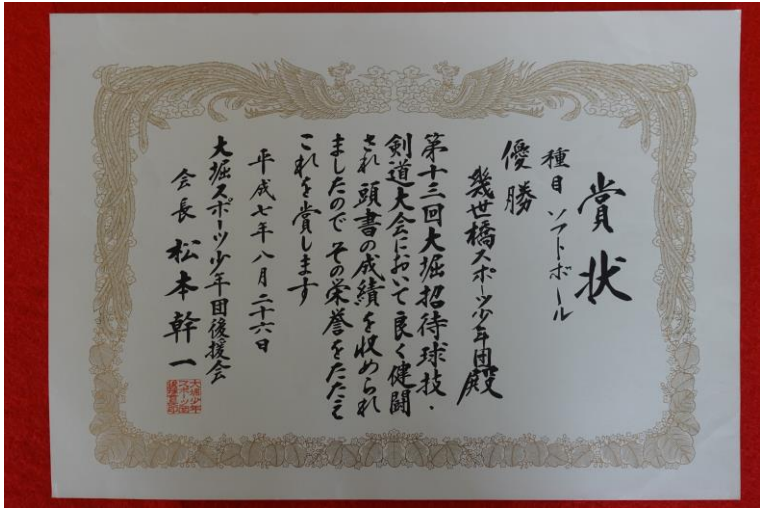 賞状
種目 ソフトボール
優勝
幾世橋スポーツ少年団殿
第十三回大堀招待球技・
剣道大会において良く健闘
され 頭書の成績を収められ
ましたので その栄誉をたたえ
これを賞します
平成七年八月二十六日
大堀スポーツ少年団後援会
会長 松本幹一